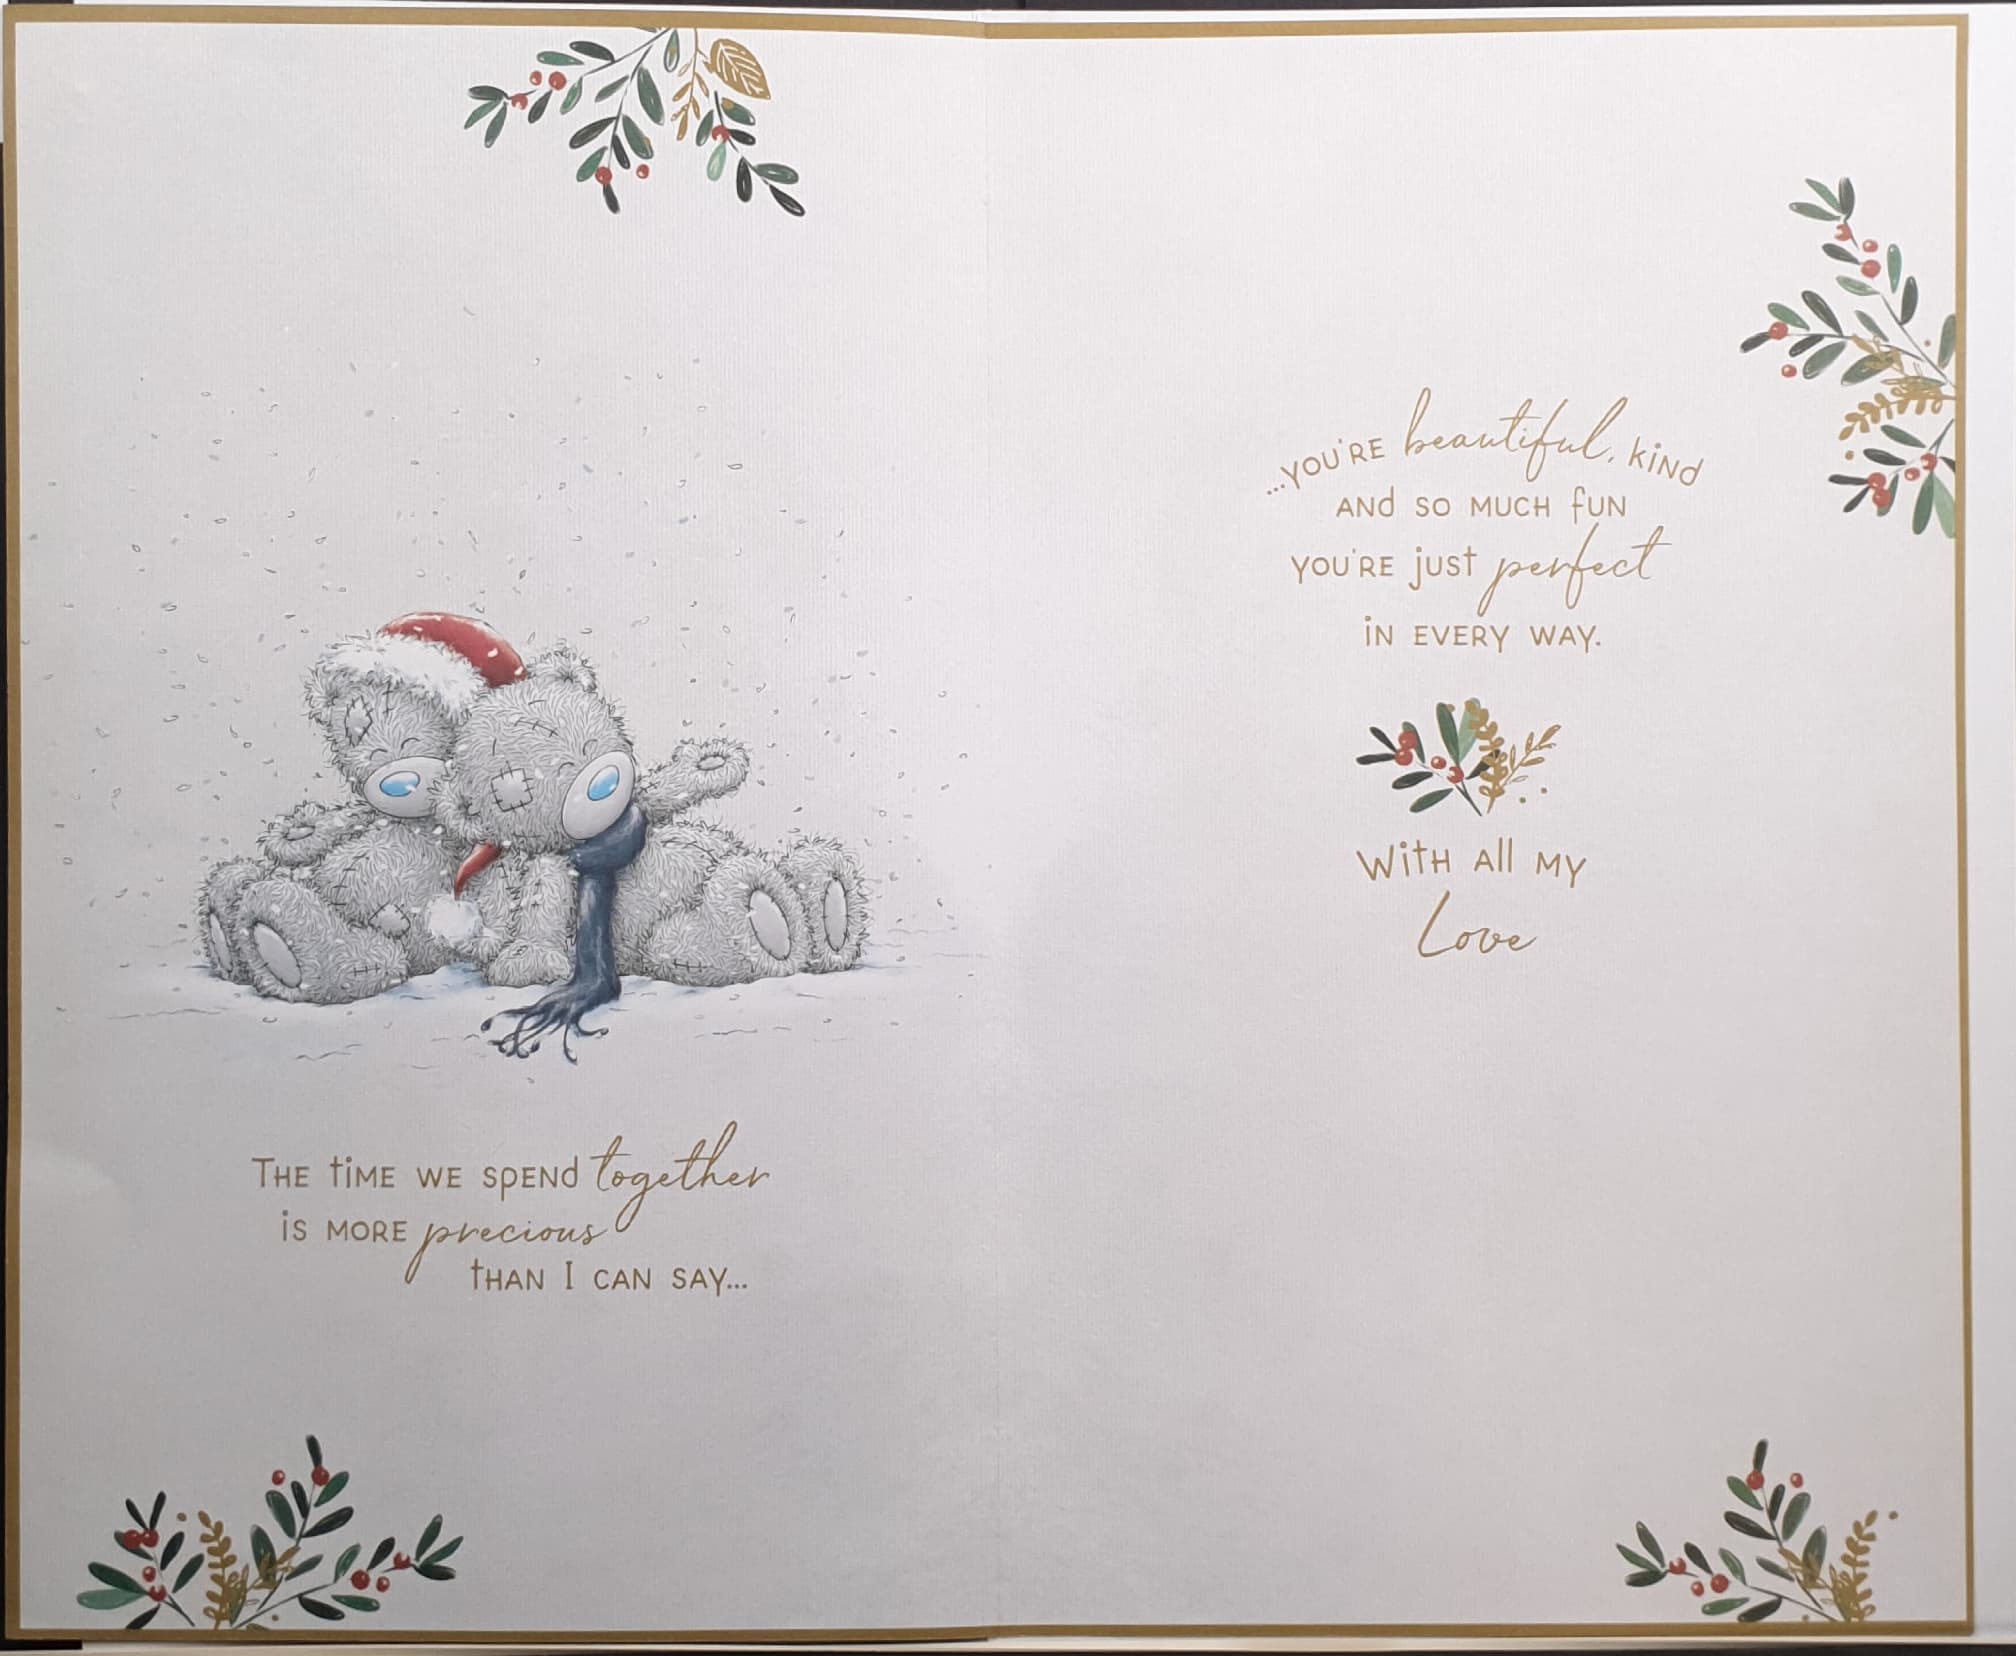 THE tiME WE SPENd together
iS MORE precious
tHAN I CAN SAY...
...YOU'RE beautiful, KiNd
ANd SO MUCH fUN
YOU'RE just perfect
iN EVERY WAY.
WitH All MY
Love